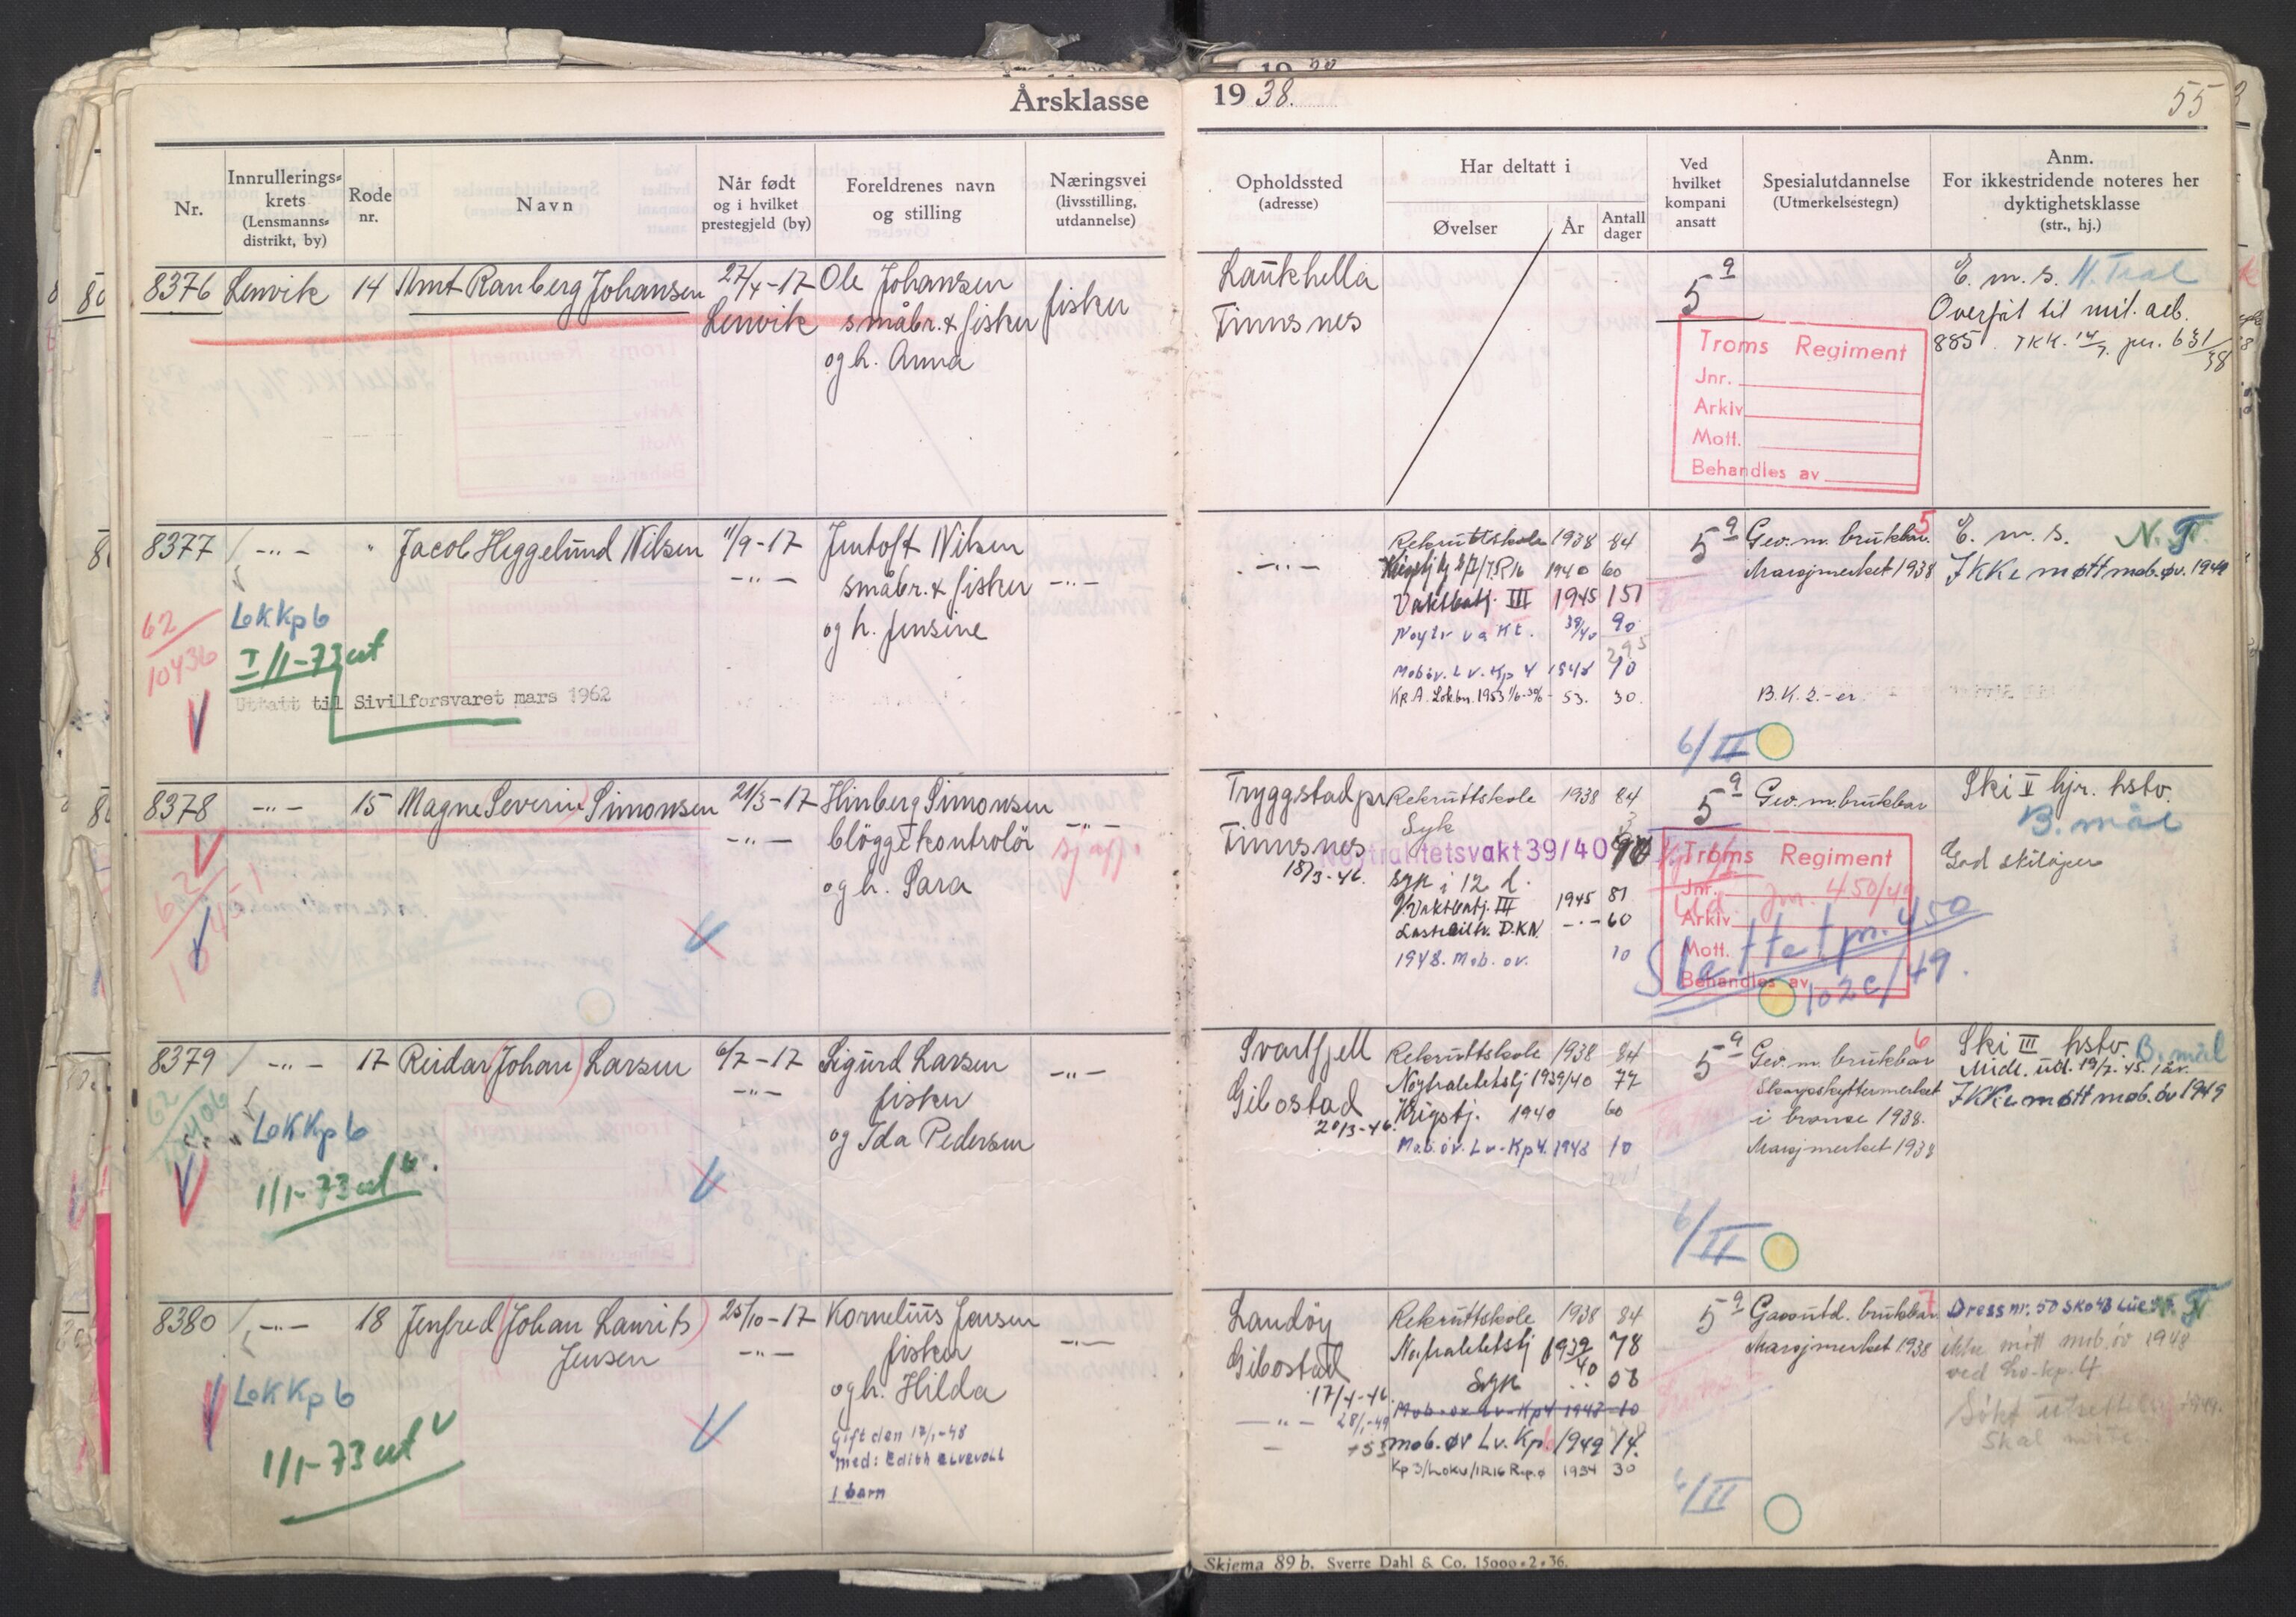 Årsklasse 1938. 55
Nr.
Innrullerings-
krets
(Lensmanns-
distrikt, by)
Rode
nr.
Navn
Når født
og i hvilket
prestegjeld (by)
Foreldrenes navn
og stilling
Næringsvei
(livsstilling,
utdannelse)
Opholdssted
(adresse)
Har deltatt i
Øvelser
År
Antall
dager
Ved
hvilket
kompani
ansatt
Spesialutdannelse
(Utmerkelsestegn)
Anm.
For ikkestridende noteres her
dyktighetsklasse
(str., hj.)
8376 Lenvik 14 Arnt Ranberg Johansen 27/4-17
Lenvik
Ole Johansen
småbr. & fisker
og h. Anna
fisker
Laukhella
Finnsnes
5a
E. m. s.
Overført til mil. arb.
885
Troms Regiment
Jnr.
Arkiv
Mott.
Behandles av
8377 -"- " Jacob Heggelund Nilsen 11/9-17
-"-
Jentoft Nilsen
småbr. & fisker
og h. Jensine
-"-
62/10436
LoKKp6
I 1/1-73 ut
Uttatt til Sivilforsvaret mars 1962
-"-
Rekruttskole 1938 84
1940 60
Vaktbatj. III 1945 151
Nøytr vakt. 39/40 90
295
Mob.øv. Lv. Kp 4 1948 10
Kp A. Lokbn. 1953 - 53. 30
5a
Gev. m. brukbar. 5
Marsjmerket 1938
B.K.2.-er
E. m. s. N.T.
IKKe møtt mob.øv. 1949
6/II
8378 -"- 15 Magne Severin Simonsen 21/3-17
-"-
Hinberg Simonsen
bløggekontrolør
og h. Sara
-"-
Tryggstad pr
Finnsnes
18/3-46.
Rekruttskole 1938 84
Syk
Nøytralitetsvakt 39/40 90
syk i 12 d.
Vaktbatj. III 1945 81
D.KN. -"- 60
1948. Mob. øv. 10
5a
Gev. m. brukbar
Ski II hjr. hstv.
B. mål
God skiløper
Troms Regiment
Jnr.
Arkiv
Mott.
Behandles av
Jnr. 450/49
Slettet pr. 450
102c/49.
8379 -"- 17 Reidar (Johan) Larsen 6/7-17
-"-
Sigurd Larsen
fisker
og Ida Pedersen
-"-
LoKKp6
1/1-73 ut
Svartfjell
Gibostad
20/3-46.
Rekruttskole 1938 84
Nøytralitetstj 1939/40 77
Krigstj. 1940 60
Mob.øv. Lv.Kp4. 1948 10
5a
Gev. m. brukbar 6
Skarpskyttermerket
i bronse 1938.
Marsjmerket 1938
Ski III hstv. B. mål
Midl. ud. 19/7. 45. 1 år.
IKKe møtt mob.øv 1949
6/II
8380 -"- 18 Jenfred (Johan Laurits)
Jensen
25/10-17
-"-
Kornelius Jensen
fisker
og h. Hilda
Gift den 17/1-48
med: Edith Elvevoll
1 barn
-"-
LoKKp6
1/1-73 ut
Landøy
Gibostad
17/4-46.
-"- 28/1-49
Rekruttskole 1938 84
Nøitralitetstj 1939/40 78
Syk
Mob.øv Lv-Kp4 1948 10
mob.øv Lv. Kp6 1949 14.
Kp 3/LoKv/IR16 Rep.ø 1954 30
5a
Gassutd. brukbar 7
Marsjmerket 1938
Dress nr. 50 Sko 43
ikke møtt mob.øv 1948
ved Lv.kp.4
Søkt utsettelse 1949.
Skal møte.
6/II
Skjema 89 b. Sverre Dahl & Co. 15000-2-36.